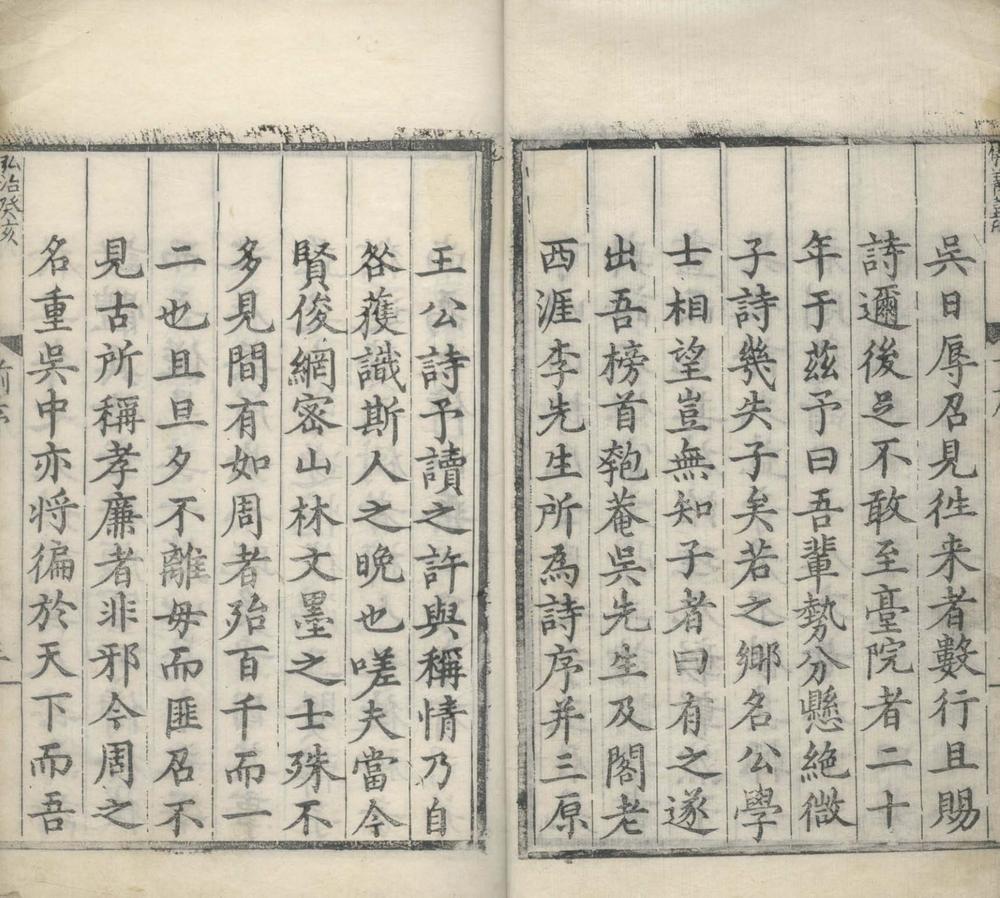 吳日辱召見徃来者數行且賜
詩邇後足不敢至臺院者二十
年于茲予曰吾輩勢分懸絶微
子詩幾失子矣若之鄉名公學
士相望豈無知子者曰有之遂
出吾榜首匏菴吳先生及閣老
西涯李先生所為詩序并三原
王公詩予讀之許與稱情乃自
咎蒦識斯人之晚也嗟夫當今
賢俊網密山林文墨之士殊不
多見間有如周者殆百千而一
二也且旦夕不離毋而匪召不
見古所稱孝廉者非邪今周之
名重吳中亦将徧於天下而吾
弘治癸亥